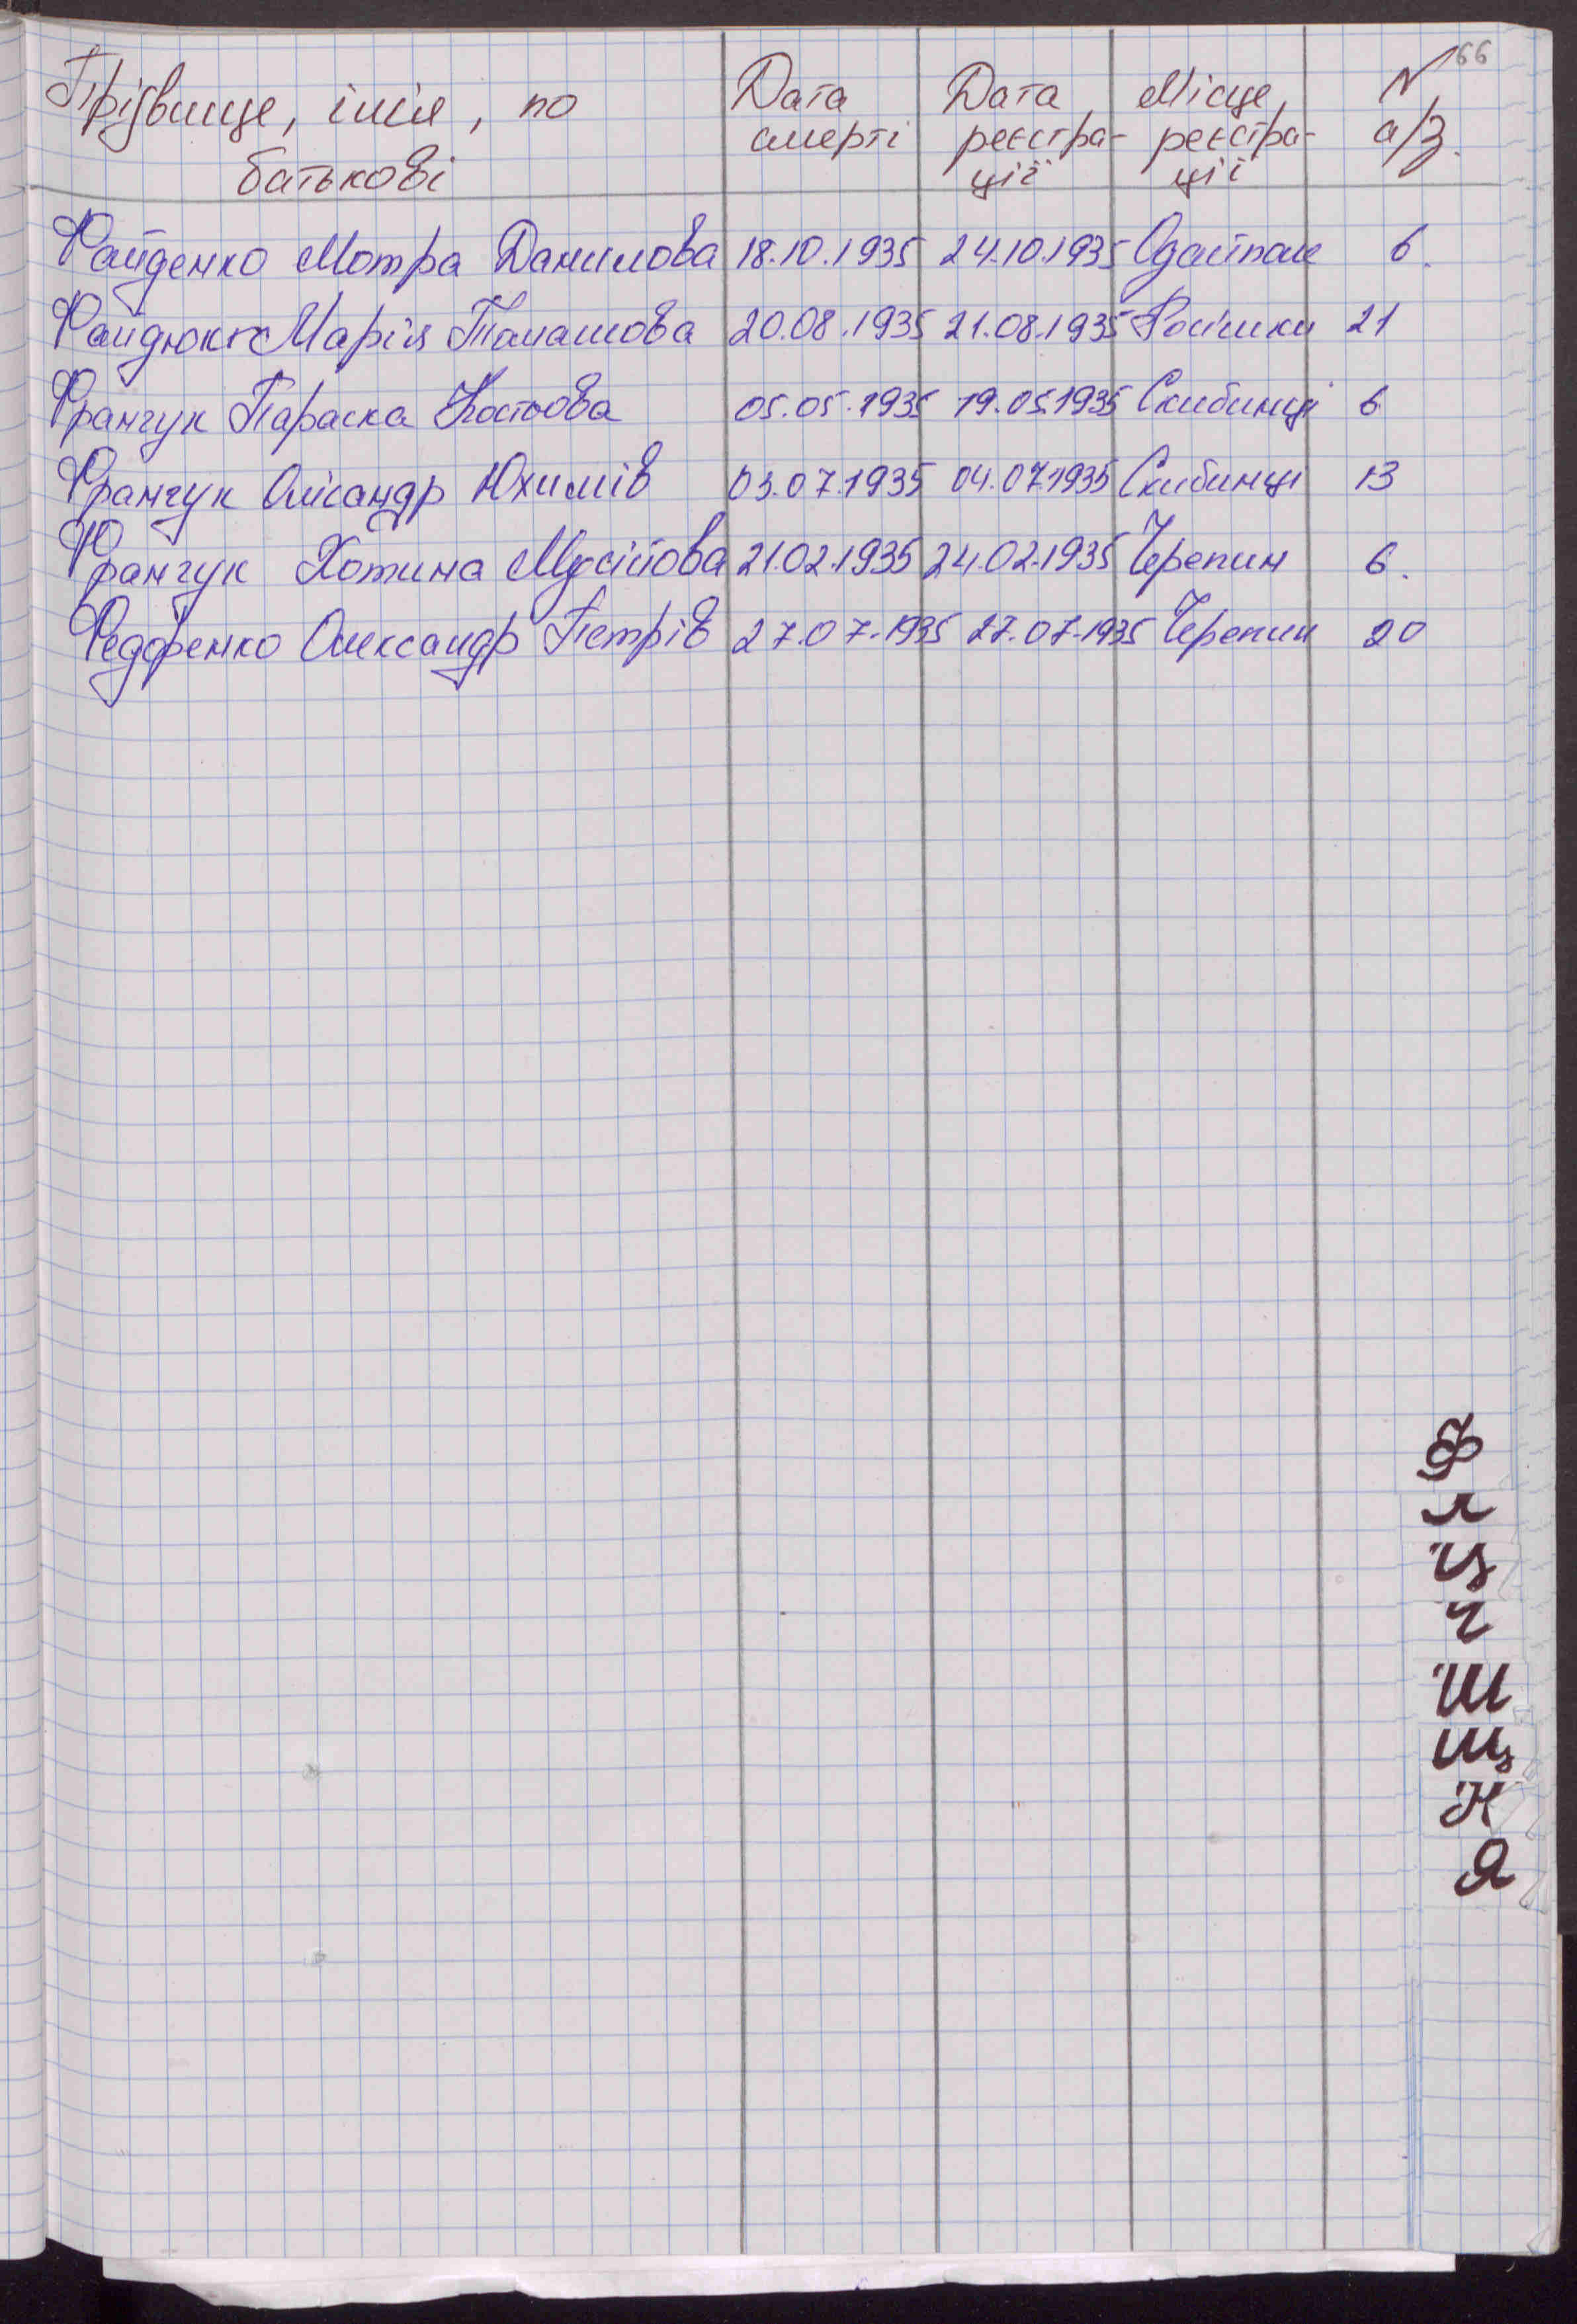 66
Прізвище, імія, по батькові Дата смерті Дата реєстрації Місце реєстрації N а/з.
Файденко Мотра Данилова 18.10.1935 24.10.1935 Одайполе 6.
Файдюк Марія Танашова 20.08.1935 21.08.1935 Росішки 21
Франчук Параска Костьова 05.05.1935 19.05.1935 Скибинці 6
Франчук Олісандр Юхимів 03.07.1935 04.07.1935 Скибинці 13
Франчук Хотина Мусійова 21.02.1935 24.02.1935 Черепин 6.
Федоренко Олександр Петрів 27.07.1935 27.07.1935 Черепин 20
Ф
Х
Ц
Ч
Ш
Щ
Ю
Я